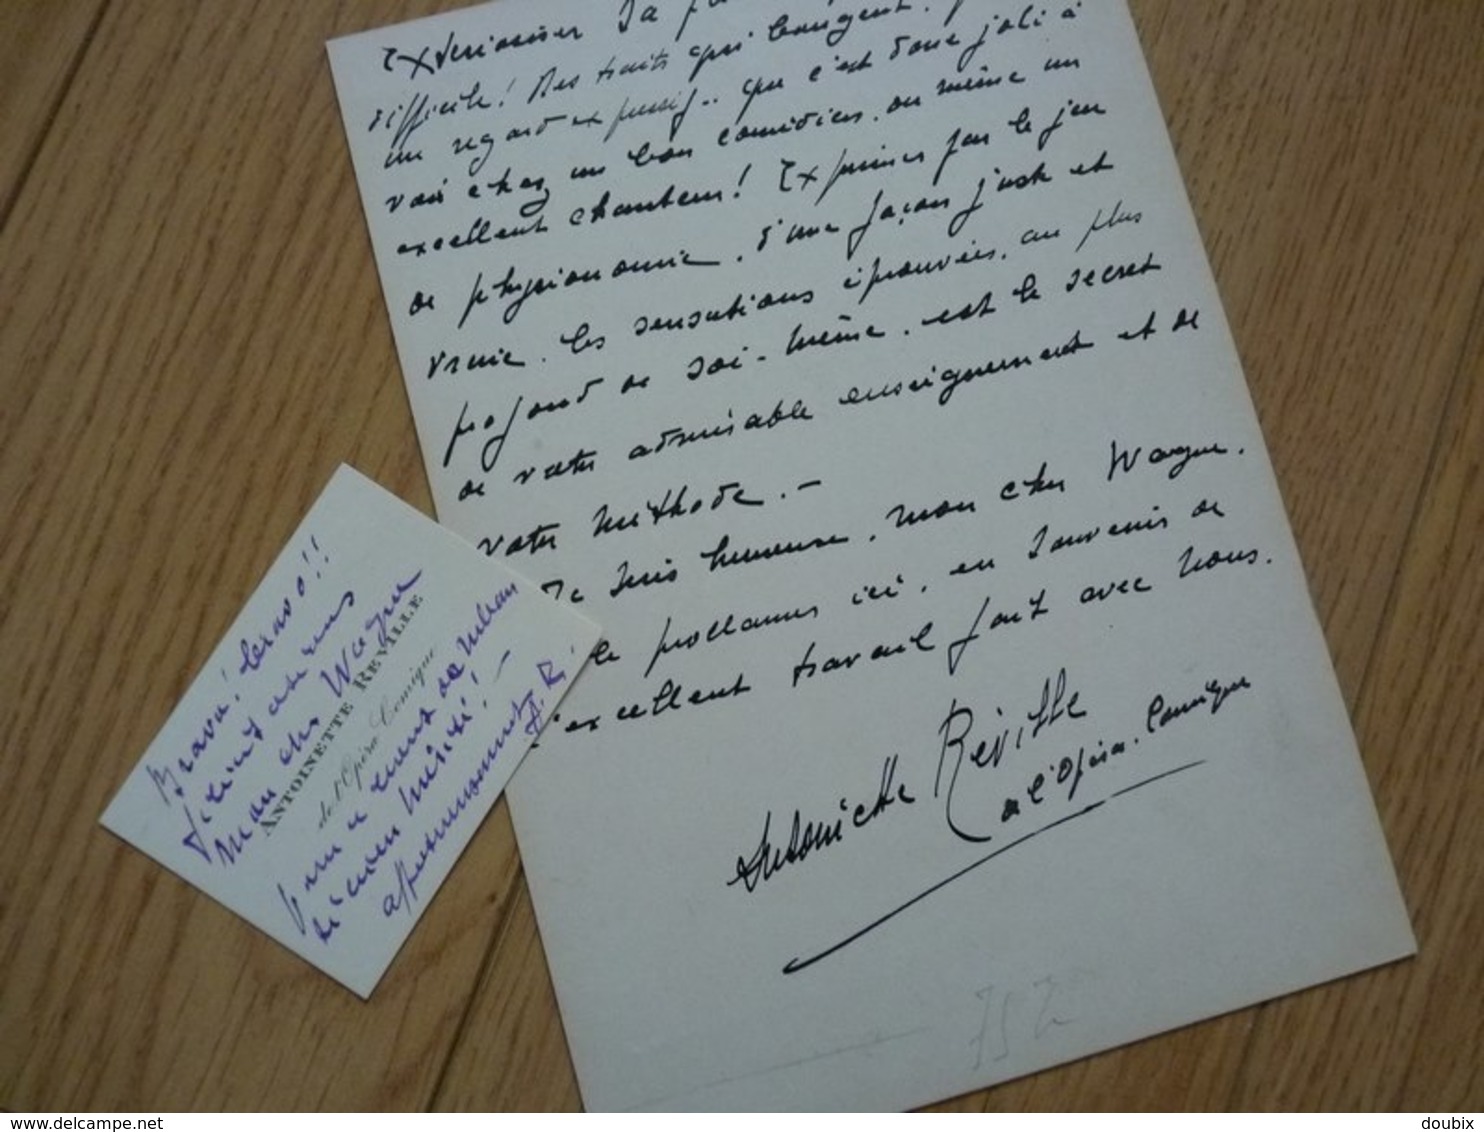 Extérioriser sa
difficile! Des traits qui bougent.
un regard expressif.. que c'est donc joli à
voir chez un bon comédien, ou même un
excellent chanteur! Exprimer par le jeu
de physionomie, d'une façon juste et
vraie, les sensations éprouvées, au plus
profond de soi-même, est le secret
de votre admirable enseignement et de
votre méthode.-
Je suis heureuse, mon cher Wague,
le proclamer ici, en souvenir de
l'excellent travail fait avec vous.
Antoinette Réville
de l'Opéra. Comique
752
Bravo! bravo!!
mon cher Wague
ANTOINETTE REVILLE
de l'Opéra Comique
ruban
mérité!-
affectueusement A. R.
delcampe.net
doubix